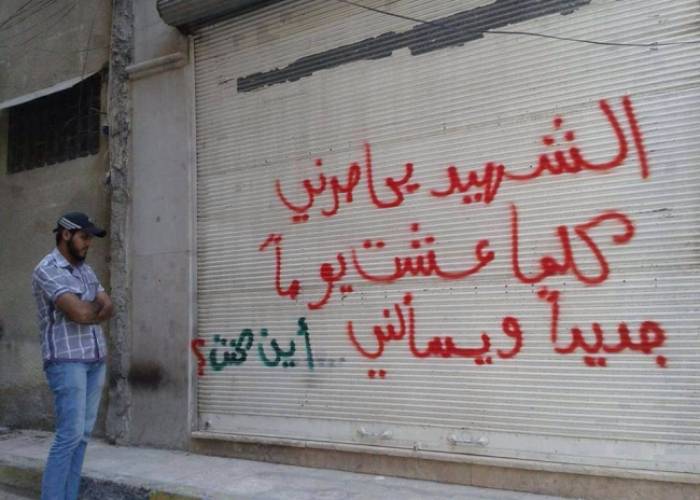 الشهيد يحاصرني
كلما عشت يوماً
جديداً ويسألني ... أين كنت؟